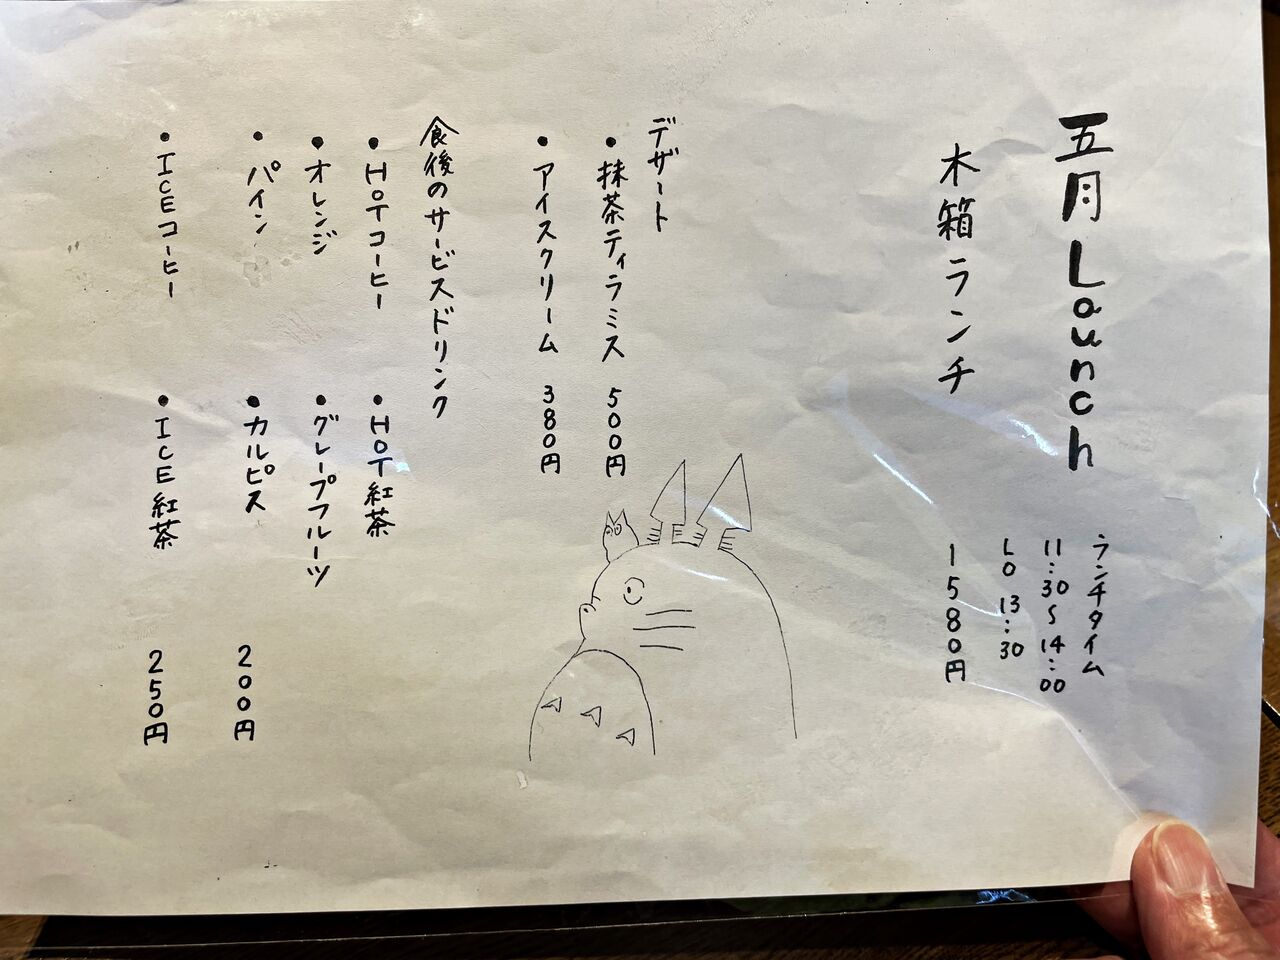 五月 Launch
ランチタイム
11:30~14:00
LO 13:30
木箱ランチ 1580円
デザート
• 抹茶ティラミス 500円
• アイスクリーム 380円
食後のサービスドリンク
• HOTコーヒー • HOT紅茶
• オレンジ • グレープフルーツ
• パイン • カルピス 200円
• ICEコーヒー • ICE紅茶 250円